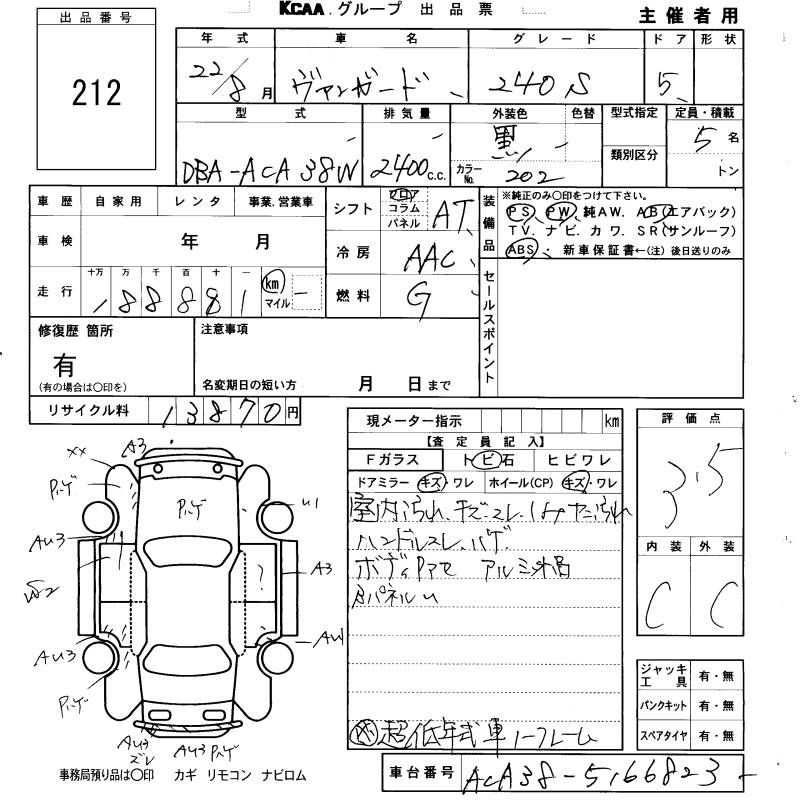 KCAA.グループ 出品票
主催者用
出品番号
212
年式 車名 グレード ドア 形状
22/8月 ヴァンガード 240S 5
型式 排気量 外装色 色替 型式指定 定員・積載
DBA-ACA38W 2400c.c. 黒 5名
カラーNo. 202 類別区分 トン
車歴 自家用 レンタ 事業.営業車
シフト フロア コラム パネル AT
装備品 ※純正のみ○印をつけて下さい。
PS. PW. 純AW. AB(エアバック)
TV. ナビ. カワ. SR(サンルーフ)
ABS・ 新車保証書←(注)後日送りのみ
車検 年 月
冷房 AAC
走行 十万 万 千 百 十 一
188881 km マイル
燃料 G
セールスポイント
修復歴 箇所
有
(有の場合は○印を)
注意事項
名変期日の短い方 月 日まで
リサイクル料 13870円
現メーター指示 km
【査定員記入】
Fガラス トビ石 ヒビワレ
ドアミラー キズ・ワレ ホイール(CP) キズ・ワレ
室内汚れ、キズ・スレ
ハンドルスレ、ハゲ
ボディ アルミ
パネルu
超低年式車 フレーム
評価点
3.5
内装 外装
C C
ジャッキ工具 有・無
パンクキット 有・無
スペアタイヤ 有・無
XX A3
U1
AU3
A3
AU3
AU3 ズレ
AU3
事務局預り品は○印 カギ リモコン ナビロム
車台番号 ACA38-5166823